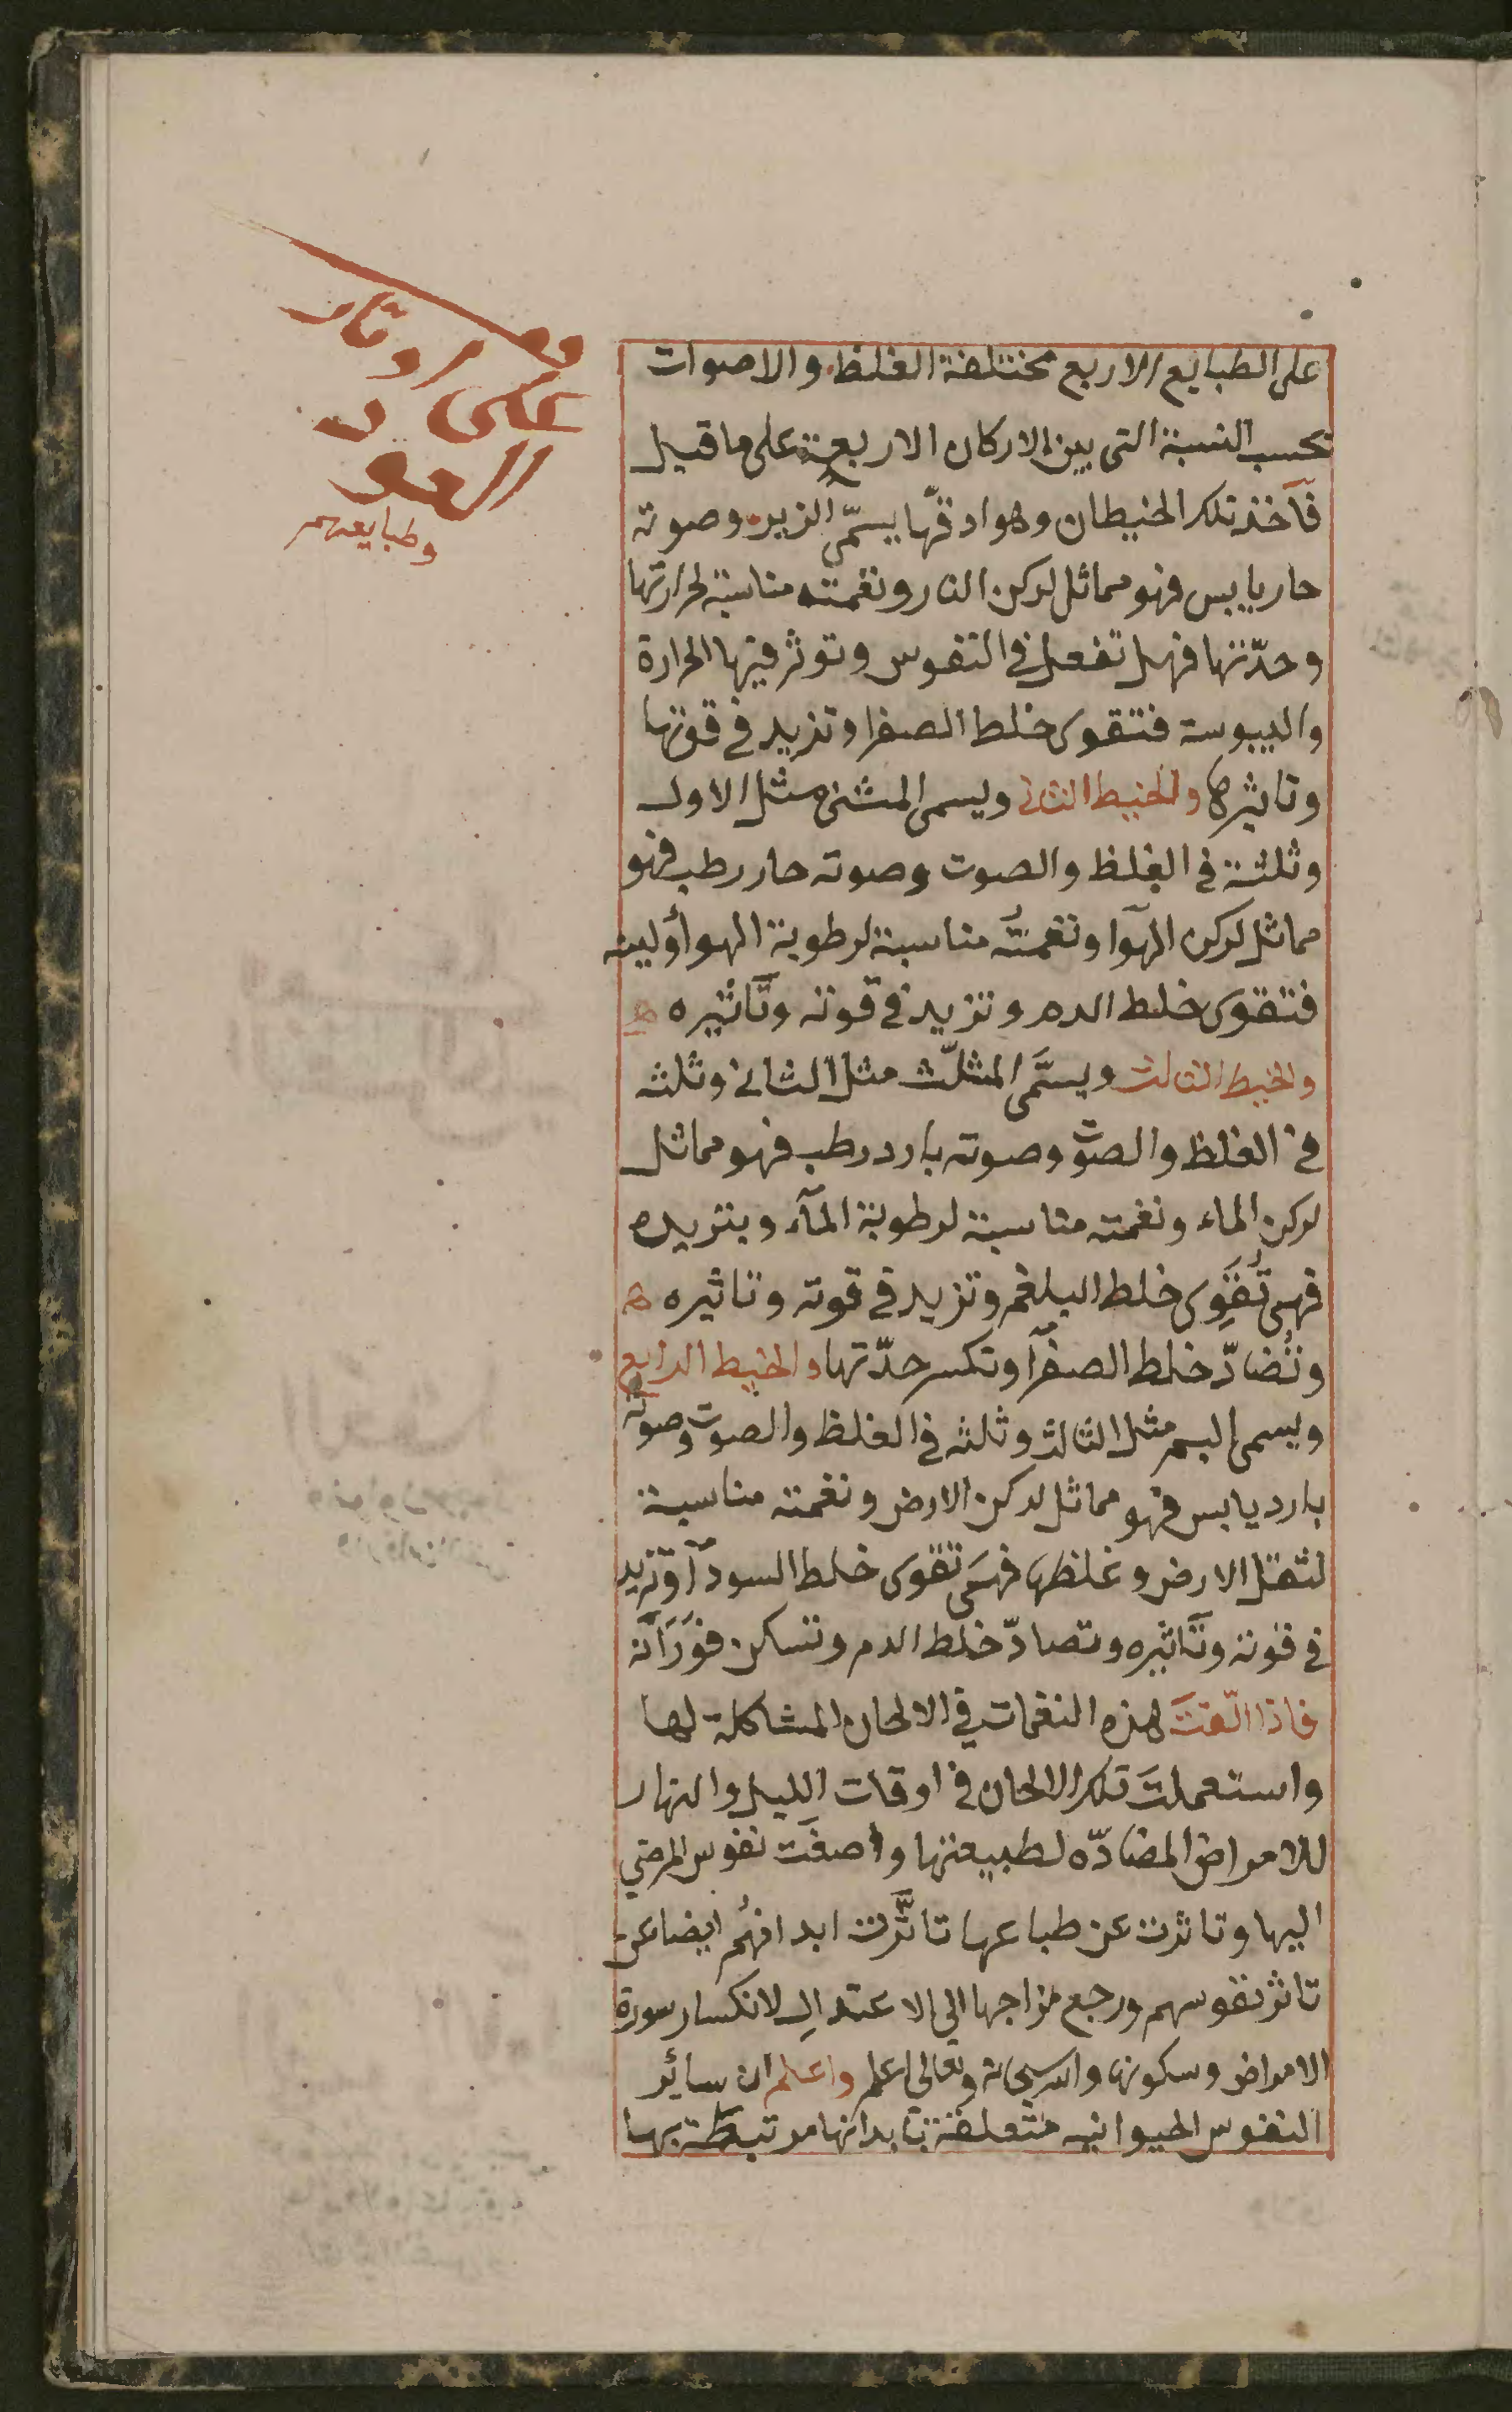 على الطبايع الاربع مختلفة الغلظ والاصوات
بحسب النسبة التى بين الاركان الاربعة على ما قيل
فآخذ تلك الخيطان وهو ادقّها يسمّى الزير وصوته
حار يابس فهو مماثل لركن النار ونغمته مناسبة لحرارتها
وحدّتها فهى تفعل في النفوس وتوثر فيها الحرارة
واليبوسة فتقوى خلط الصفرا وتزيد في قوتها
وتاثيرها والخيط الثاني ويسمى المثنى مثل الاول
وثلثه في الغلظ والصوت وصوته حار رطب فهو
مماثل لركن الهوآ ونغمتُه مناسبة لرطوبة الهوا ولينه
فتقوى خلط الدم وتزيد في قوته وتأثيره
والخيط الثالث ويسَمّى المثلّث مثل الثاني وثلثه
في الغلظ والصوت وصوته بارد رطب فهو مماثل
لركن الماء ونغمته مناسبة لرطوبة المآء وبتزيده
فهى تُقَوِى خلط البلغم وتزيد في قوته وتاثيره
وتُضادّ خلط الصفرآ وتكسر حدّتها والخيط الرابع
ويسمى البم مثل الثالث وثلثه في الغلظ والصوت وصوته
بارد يابس فهو مماثل لركن الارض ونغمته مناسبة
لثقل الارض وغلظها فهى تقوى خلط السودآ وتزيد
في قوته وتأثيره وتضادّ خلط الدم وتسكن فوَرَانه
فاذا الّفتَ هذه النغمات في الالحان المشاكلة لها
واستعملتَ تلك الالحان في اوقات الليل والنهار
للامراض المضادّه لطبيعتها واصغَت نفوس المرضي
اليها وتاثرت عن طباعها تاثّرت ابدانهُم ايضا عن
تاثر نفوسهم ورجع مزاجها الي الاعتدالِ لانكسار سورة
الامراض وسكونها والله سبحانه وتعالى اعلم واعلم ان سائر
النفوس الحيوانيه متعلقة بابدانها مرتبطة بها
على اوتار
العود
وطبايعهم